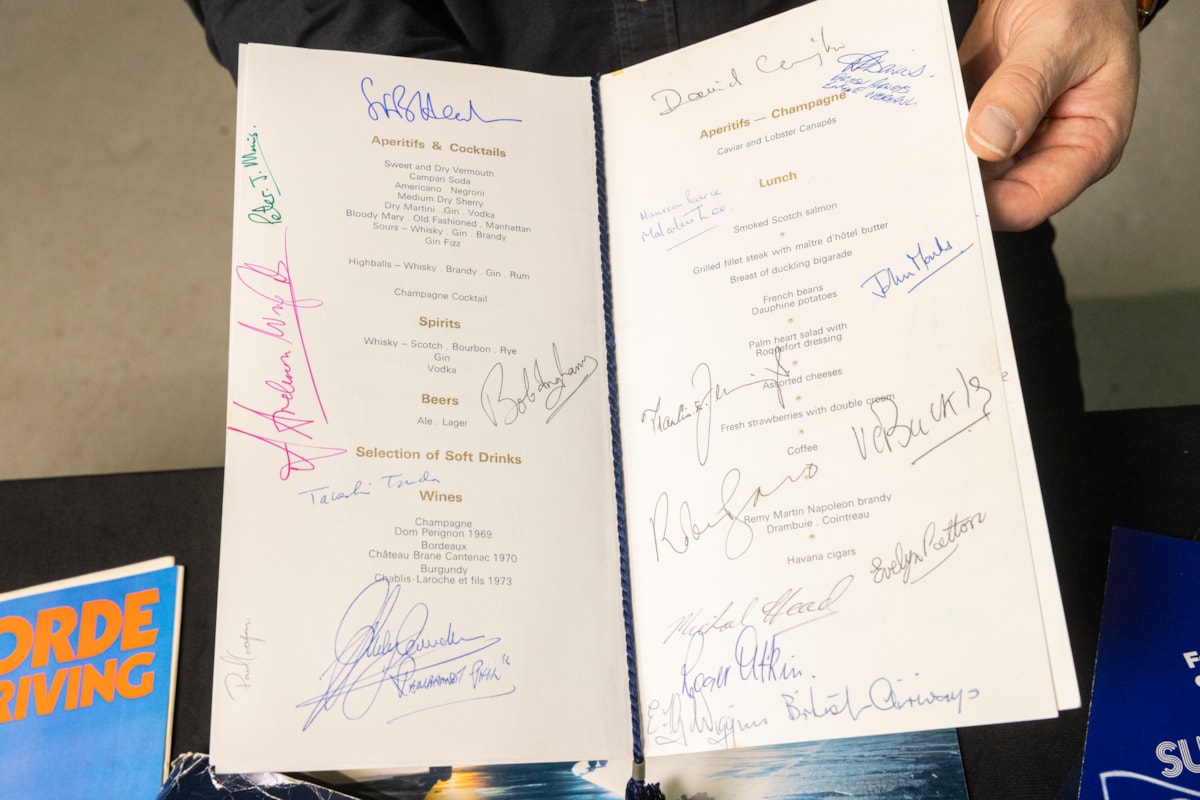 Aperitifs & Cocktails
Sweet and Dry Vermouth
Campari Soda
Americano . Negroni
Medium Dry Sherry
Dry Martini . Gin . Vodka
Bloody Mary . Old Fashioned . Manhattan
Sours – Whisky . Gin . Brandy
Gin Fizz
Highballs – Whisky . Brandy . Gin . Rum
Champagne Cocktail
Spirits
Whisky – Scotch . Bourbon . Rye
Gin
Vodka
Beers
Ale . Lager
Selection of Soft Drinks
Wines
Champagne
Dom Perignon 1969
Bordeaux
Château Brane Cantenac 1970
Burgundy
Chablis-Laroche et fils 1973
Peter. J. Morris.
Bob Ingham
David
Aperitifs — Champagne
Caviar and Lobster Canapés
Lunch
Maureen
Malcolm Lee.
Smoked Scotch salmon
Grilled fillet steak with maître d'hôtel butter
Breast of duckling bigarade
John Marks
French beans
Dauphine potatoes
Palm heart salad with
Roquefort dressing
Assorted cheeses
Fresh strawberries with double cream
Coffee
Remy Martin Napoleon brandy
Drambuie . Cointreau
Havana cigars
Evelyn Patton
Michael Head
Roger Atkin.
British Airways
ORDE
RIVING
SU